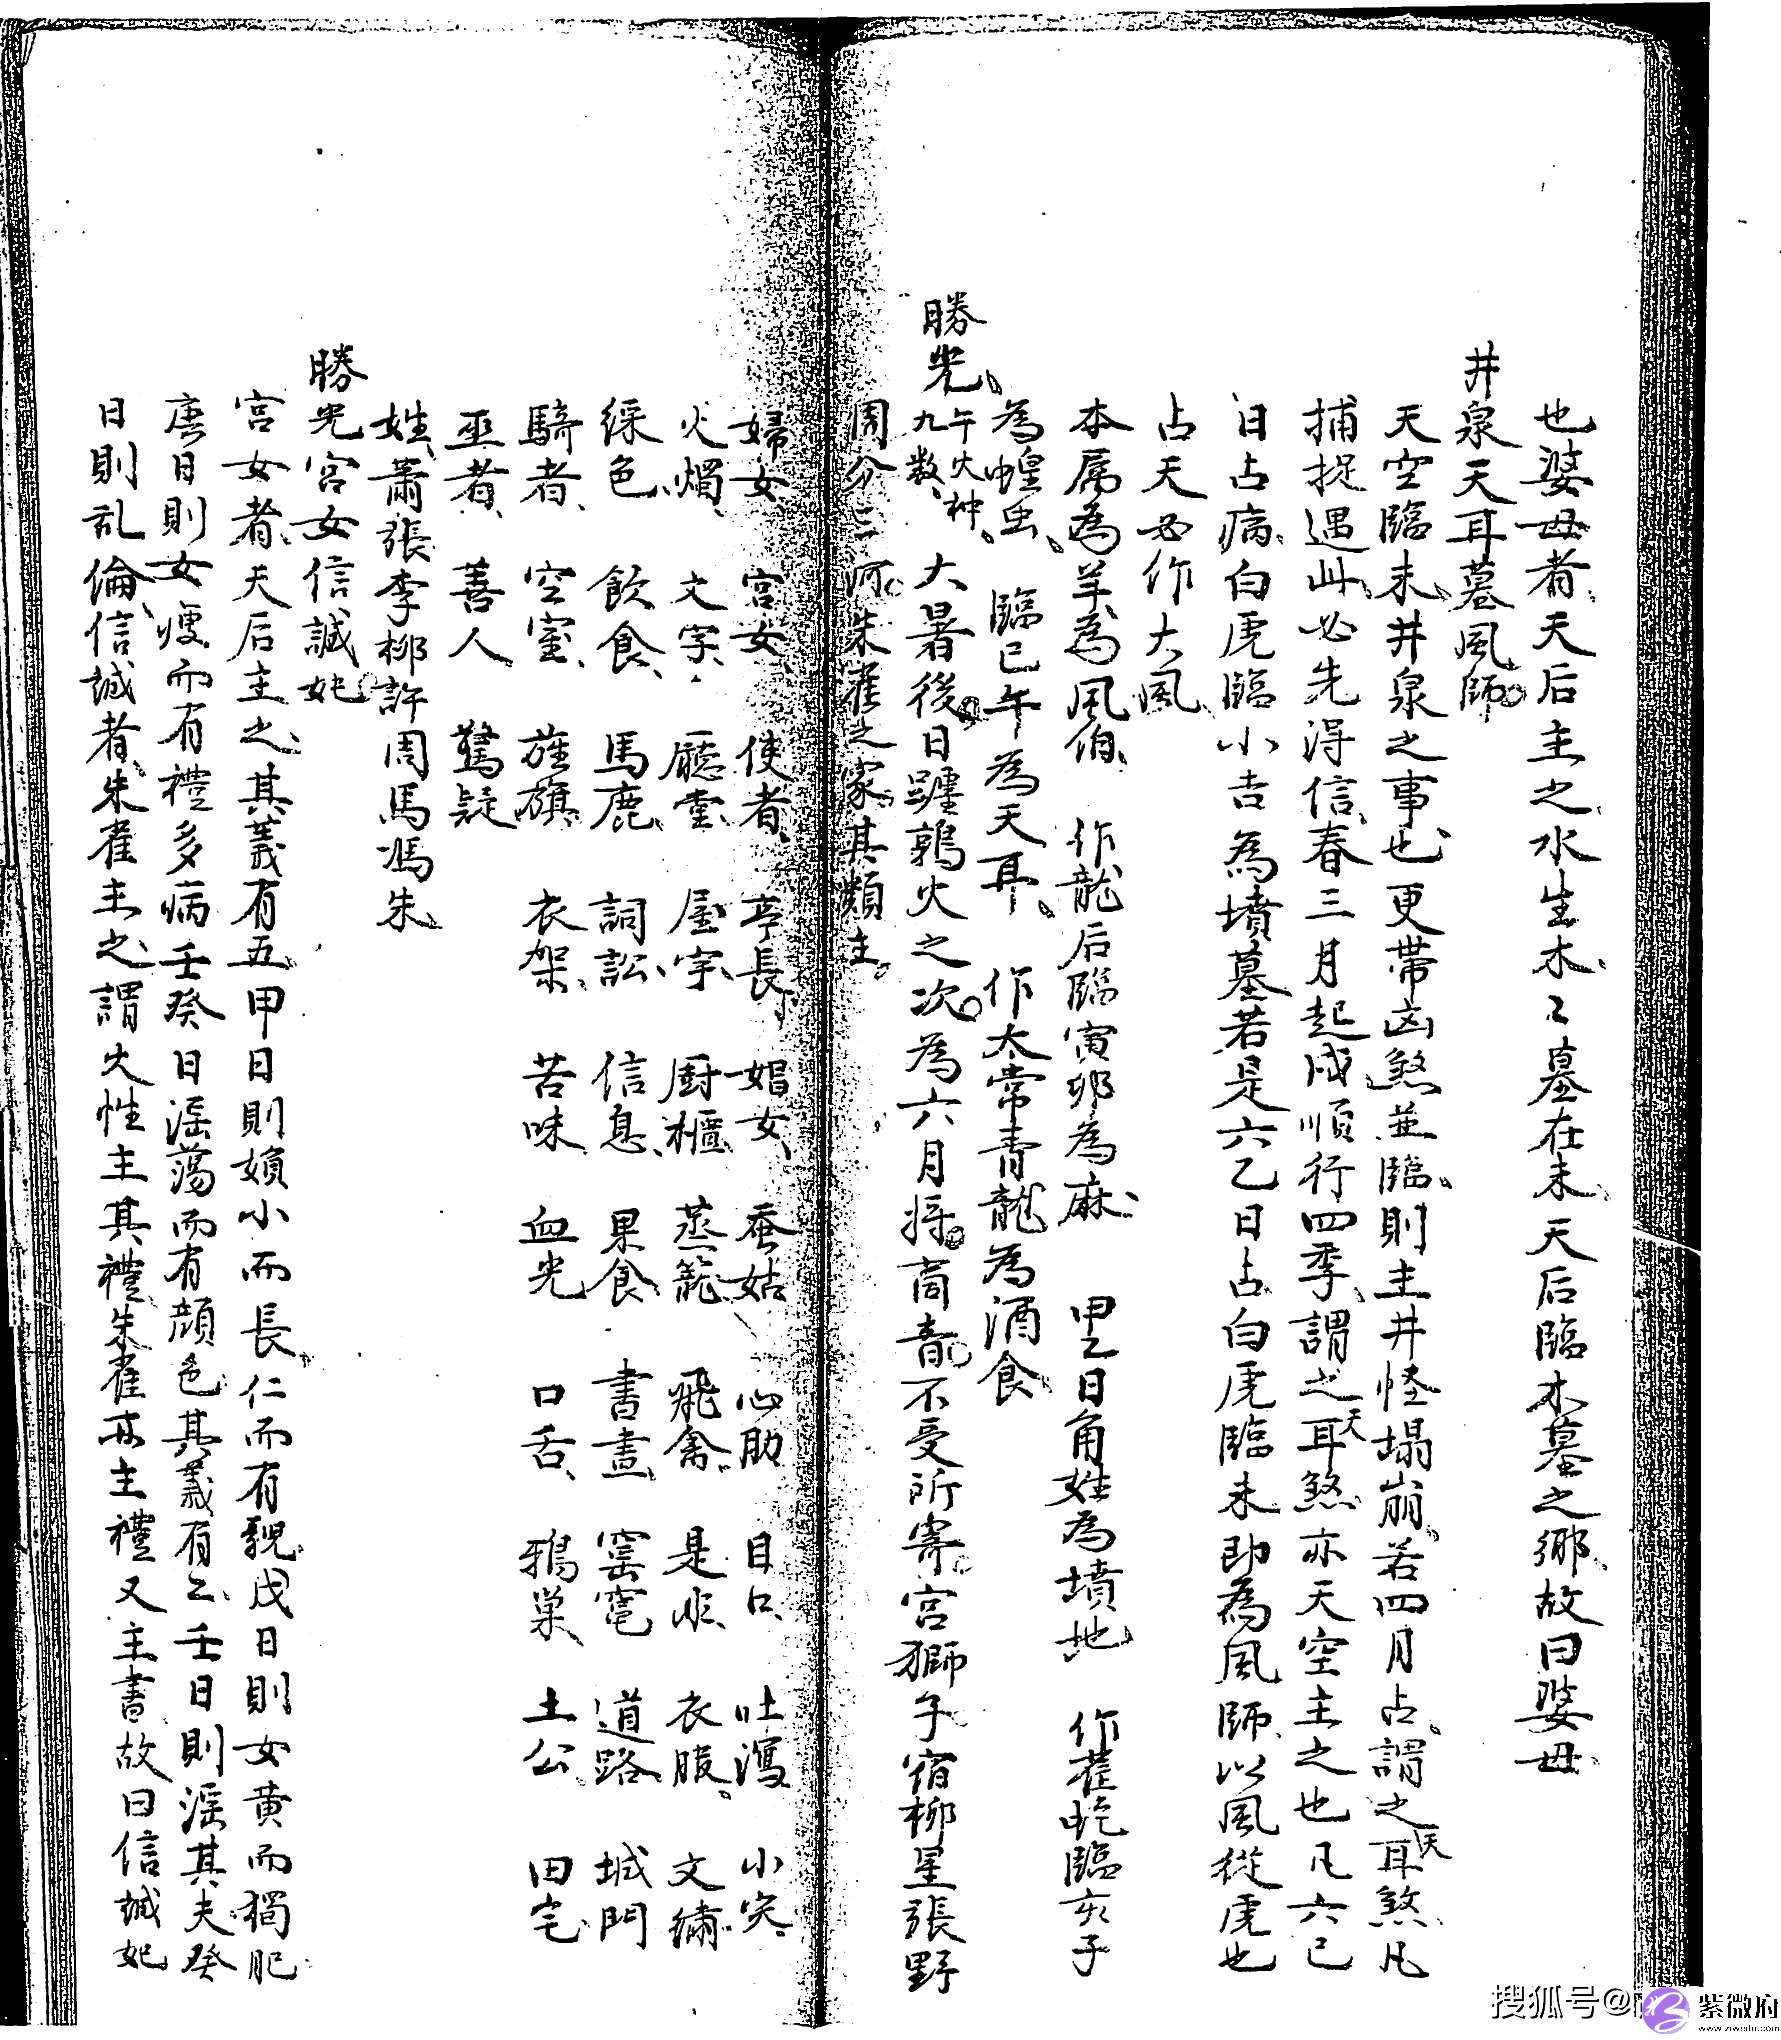 也婆母者天后主之水生木〻墓在未天后臨木墓之鄉故曰婆母
井泉天耳墓風師
天空臨未井泉之事也更帶凶煞並臨則主井怪塌崩若四月占謂之天耳煞凡
捕捉遇此必先得信春三月起戌順行四季謂之天耳煞亦天空主之也凡六己
日占病白虎臨小吉為墳墓若是六乙日占白虎臨未即為風師以風從虎也
占天必作大風
本属為羊為風伯 作龍后臨寅卯為麻 甲乙日角姓為墳地 作雀虵臨亥子
為蝗虫 臨巳午為天耳 作太常青龍為酒食
勝光 午火神九数 大暑後日躔鶉火之次為六月將商音不受所寄宮獅子宿柳星張野
周分三河朱雀之家其類主
婦女 宮女 使者 亭長 娼女 蚕姑 心肋 目口 吐瀉 小突
火燭 文字 廳堂 屋宇 厨櫃 蒸籠 飛禽 是非 衣服 文繡
綵色 飲食 馬鹿 詞訟 信息 果食 書畫 窑竈 道路 城門
騎者 空室 旌旗 衣架 苦味 血光 口舌 鴉巢 土公 田宅
巫者 善人 驚疑
姓蕭張李柳許周馬馮朱
勝光宮女信誠妃
宮女者天后主之其義有五甲日則嬪小而長仁而有貌戊日則女黄而獨肥
庚日則女瘦而有禮多病壬癸日滛蕩而有顔色其義有二壬日則滛其夫癸
日則乱倫信誠者朱雀主之謂火性主其禮朱雀亦主禮又主書故曰信誠妃
搜狐号@
紫微府
www.ziweifu.com